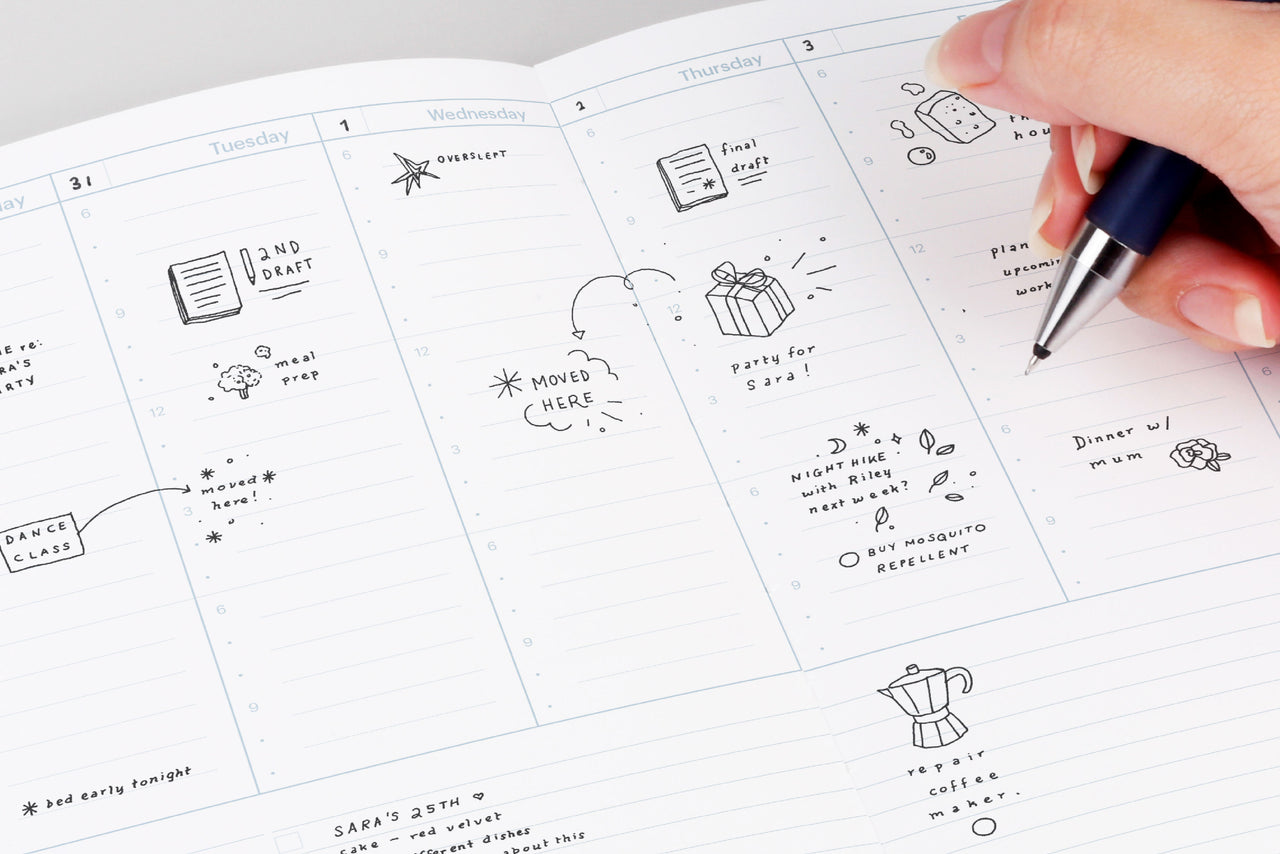 31
Tuesday
6
2ND
DRAFT
9
meal
prep
12
moved
here!
3
6
9
DANCE
CLASS
* bed early tonight
1
Wednesday
6
OVERSLEPT
9
12
MOVED
HERE
3
6
9
2
Thursday
6
final
draft
9
12
party for
Sara!
3
NIGHT HIKE
with Riley
next week?
6
BUY MOSQUITO
REPELLENT
9
3
6
9
12
3
6
Dinner w/
mum
9
6
SARA'S 25TH
cake - red velvet
dishes
about this
repair
coffee
maker.